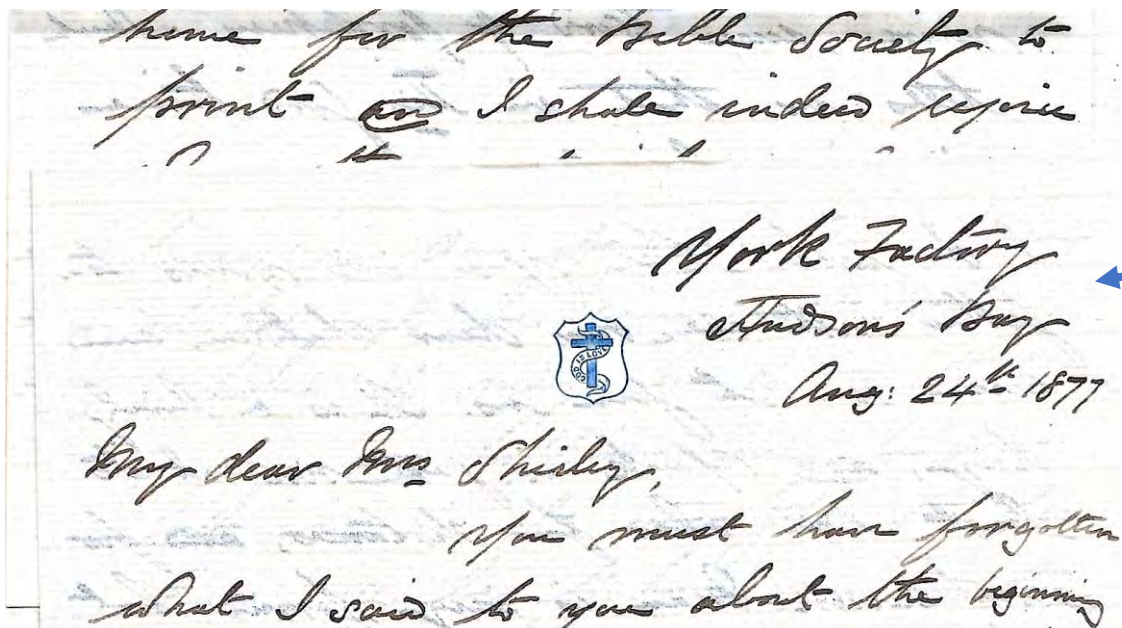 home for the Bible Society to
print and I shall indeed rejoice
York Factory
Hudson's Bay
GOD IS LOVE
Aug: 24th 1877
My dear Mrs Shirley,
You must have forgotten
what I said to you about the beginning